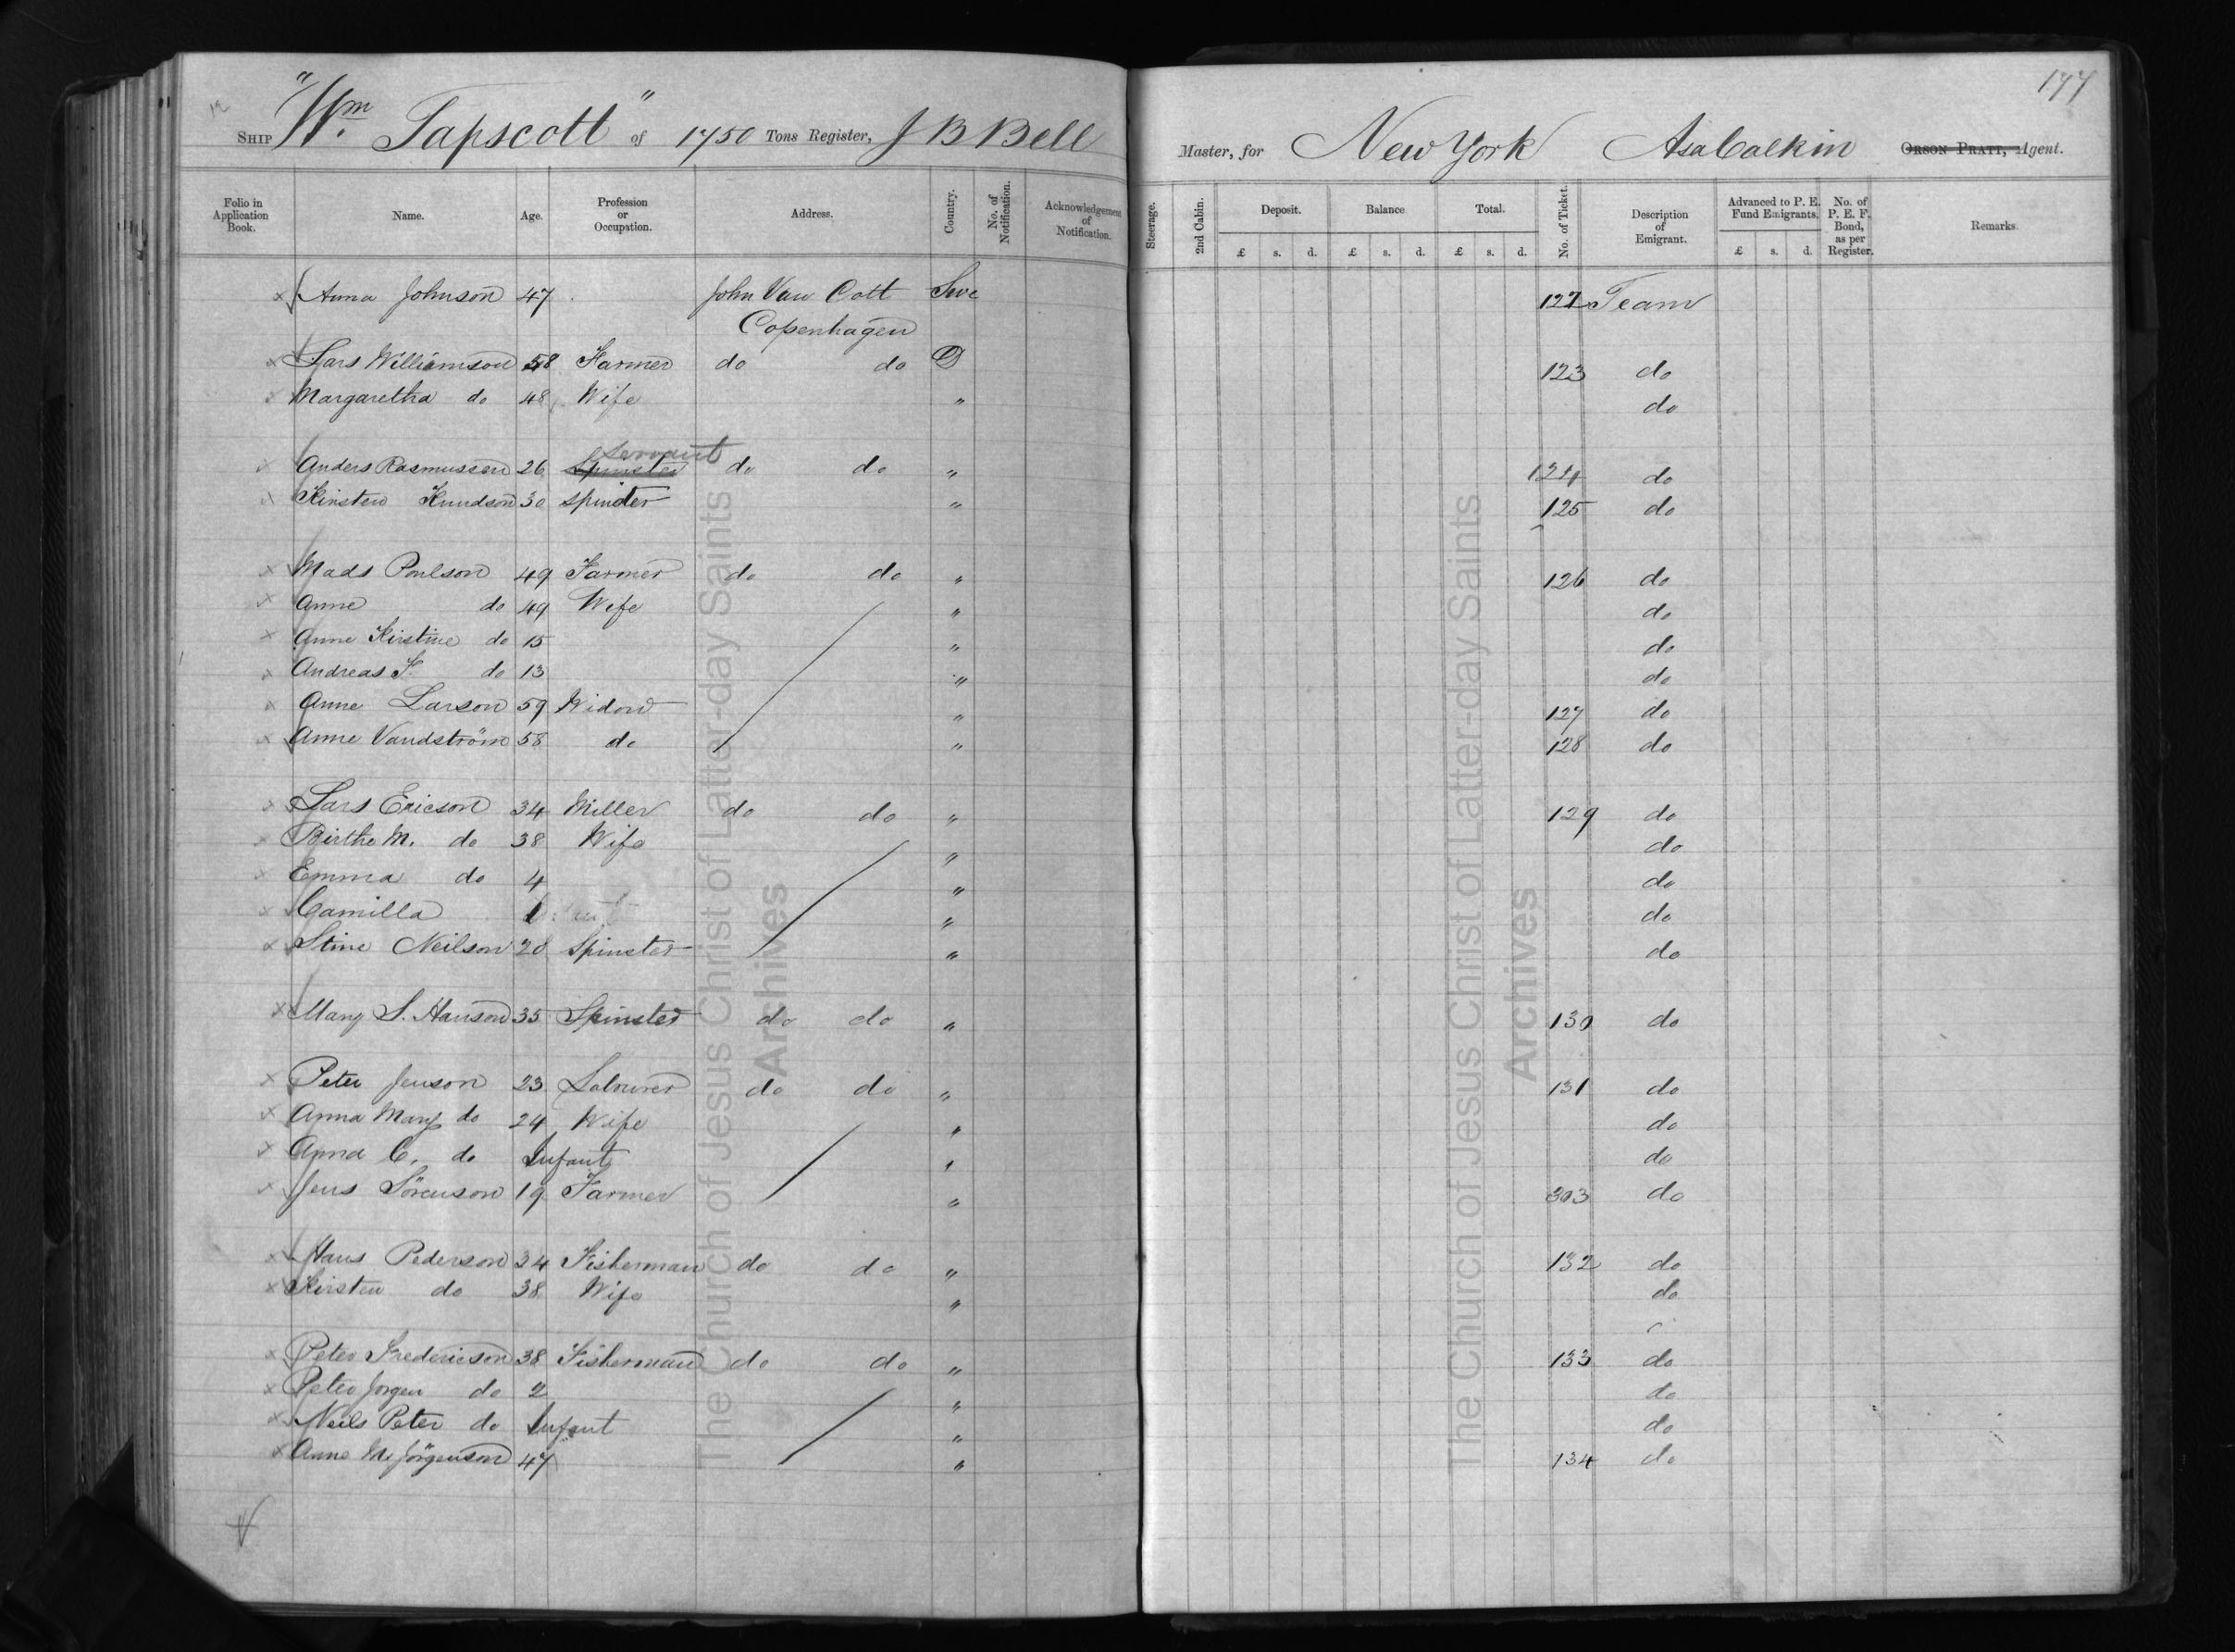 177
SHIP "Wm. Tapscott" of 1750 Tons Register, J B Bell Master, for New York Asa Calkin ORSON PRATT, Agent.
Folio in Application Book. Name. Age. Profession or Occupation. Address. Country. No. of Notification. Acknowledgement of Notification. Steerage. 2nd Cabin. Deposit. Balance Total. No. of Ticket. Description of Emigrant. Advanced to P. E. Fund Emigrants. No. of P. E. F. Bond, as per Register. Remarks.
£ s. d. £ s. d. £ s. d. £ s. d.
Anna Johnson 47 John Van Cott Swe 122 Team
Copenhagen
Lars Williamson 58 Farmer do do D 123 do
Margaretha do 48 Wife " do
Servant
Anders Rasmussen 26 Spinster do do " 124 do
Kirsten Knudson 30 Spinster " 125 do
Mads Poulson 49 Farmer do do " 126 do
Anne do 49 Wife " do
Anne Kirstine do 15 " do
Andreas F. do 13 " do
Anne Larson 59 Widow " 127 do
Anne Vandström 58 do " 128 do
Lars Ericson 34 Miller do do " 129 do
Birthe M. do 38 Wife " do
Emma do 4 " do
Camilla 1 " do
Stine Neilson 20 Spinster " do
Mary S. Hanson 35 Spinster do do " 130 do
Peter Jenson 23 Labourer do do " 131 do
Anna Mary do 24 Wife " do
Anna C. do Infant " do
Jens Sörenson 19 Farmer " 303 do
Hans Pederson 34 Fisherman do do " 132 do
Kirsten do 38 Wife " do
Peter Fredericson 38 Fisherman do do " 133 do
Peter Jorgen do 2 " do
Neils Peter do Infant " do
Anne M. Jörgenson 47 " 134 do
The Church of Jesus Christ of Latter-day Saints
Archives
The Church of Jesus Christ of Latter-day Saints
Archives